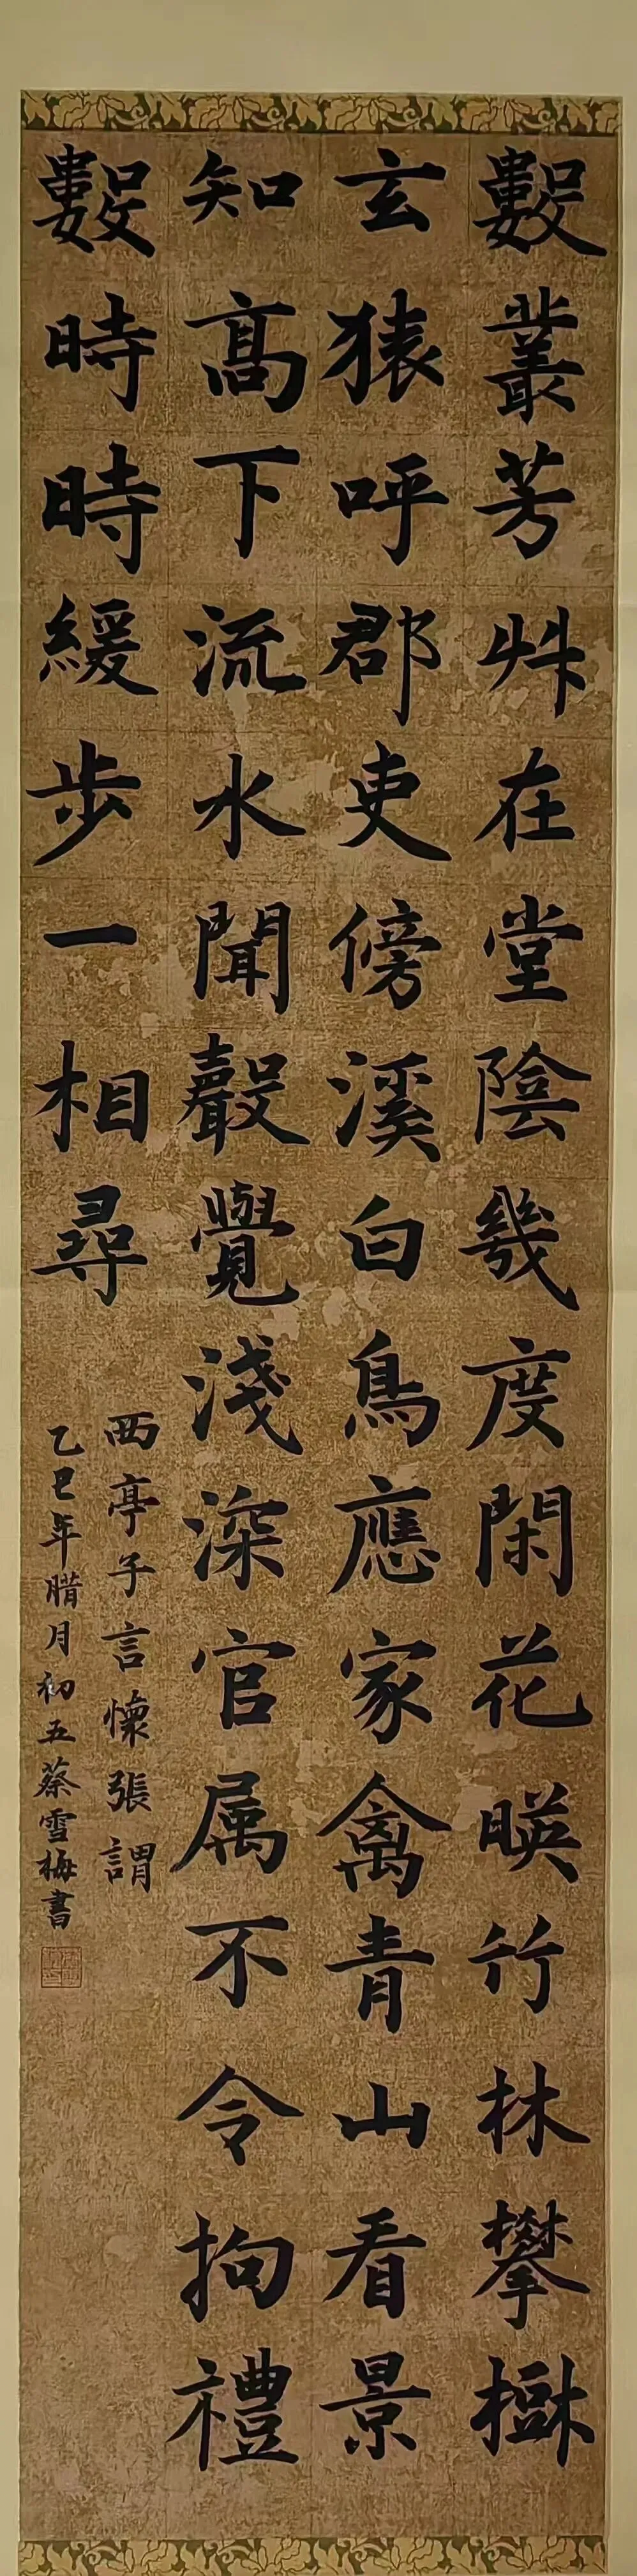 數叢芳艸在堂陰幾度閑花暎竹林攀樹
玄猿呼郡吏傍溪白鳥應家禽青山看景
知高下流水聞聲覺淺深官属不令拘禮
數時時緩步一相尋
西亭子言懷張謂
乙巳年腊月初五蔡雪梅書